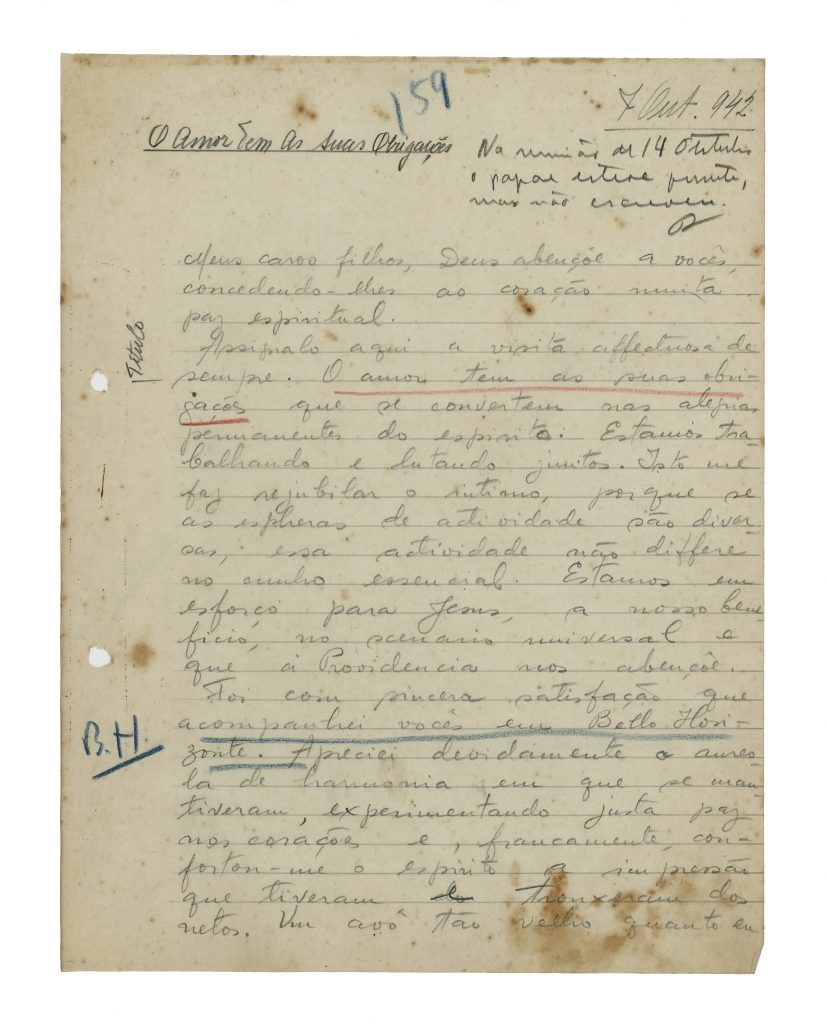 159
7 Out. 942
O Amor Tem As Suas Obrigações
Na reunião de 14 Outubro
o papae esteve presente,
mas não escreveu.
Meus caros filhos, Deus abençõe a vocês,
concedendo-lhes ao coração muita
paz espiritual.
Titulo
Assignalo aqui a visita affectuosa de
sempre. O amor tem as suas obri-
gações que se convertem nas alegrias
permanentes do espirito. Estamos tra-
balhando e lutando juntos. Isto me
faz rejubilar o intimo, porque se
as espheras de actividade são diver-
sas, essa actividade não differe
no cunho essencial. Estamos em
esforço para Jesus, a nosso bene-
ficio, no scenario universal e
que a Providencia nos abençõe.
Foi com sincera satisfação que
acompanhei vocês em Bello Hori-
B.H
zonte. Apreciei devidamente a aureo-
la de harmonia em que se man-
tiveram, experimentando justa paz
nos corações e, francamente, con-
fortou-me o espirito a impressão
que tiveram trouxeram dos
netos. Um avô tão velho quanto eu